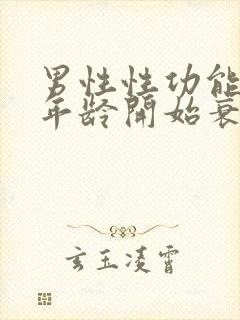 男性性功能
年龄開始衰
玄玉凌霄